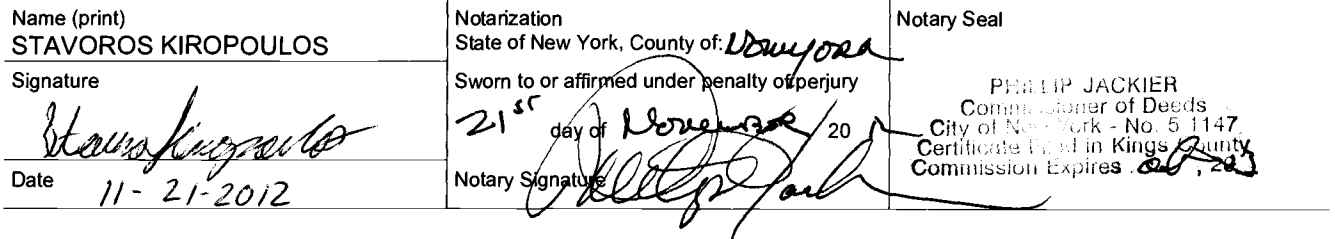 Name (print)
STAVOROS KIROPOULOS
Signature
Stavros Kiropoulos
Date
11-21-2012
Notarization
State of New York, County of: New York
Sworn to or affirmed under penalty of perjury
21st day of November 20
Notary Signature
Notary Seal
PHILLIP JACKIER
Commissioner of Deeds
City of New York - No. 5 1147
Certificate Filed in Kings County
Commission Expires